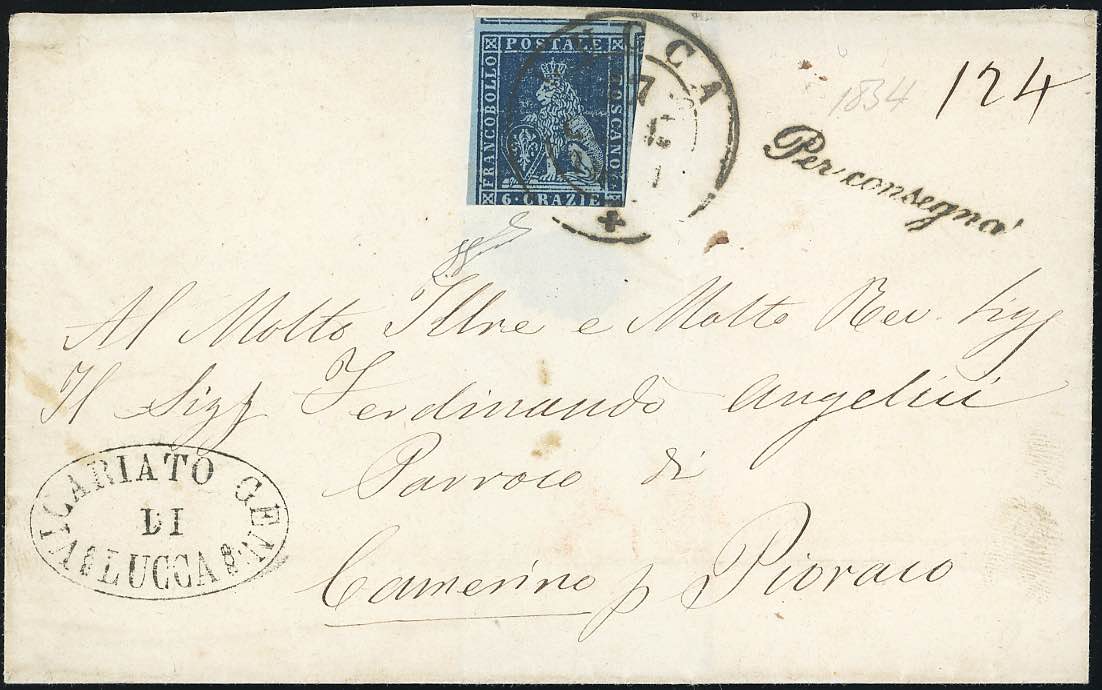 FRANCOBOLLO POSTALE TOSCANO
6 · CRAZIE
LUCCA
7
1834
124
Per consegna
Al Molto Illre e Molto Rev.
Il Ferdinando Angelini
Parroco di
Camerino p Pioraco
VICARIATO GEN
DI
LUCCA